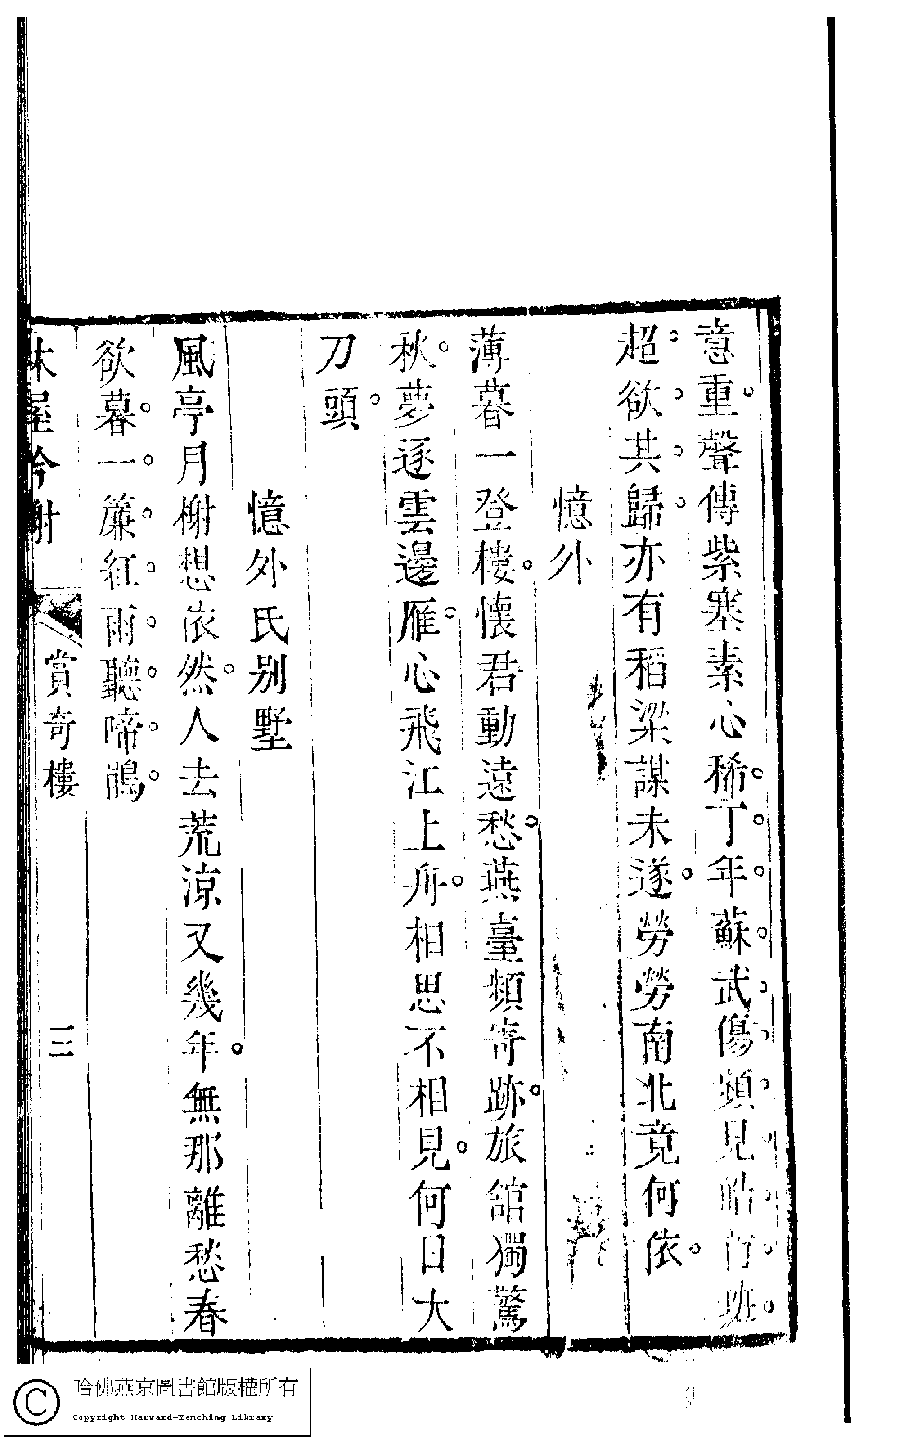 意重聲傳紫塞素心稀丁年蘇武傷頻見皓首班
超欲其歸亦有稻粱謀未遂勞勞南北竟何依
憶外
薄暮一登樓懷君動遠愁燕臺頻寄跡旅館獨驚
秋夢逐雲邊雁心飛江上舟相思不相見何日大
刀頭
憶外氏別墅
風亭月榭想依然人去荒涼又幾年無那離愁春
欲暮一簾紅雨聽啼鵑
林屋吟榭
賞奇樓
三
哈佛燕京圖書館版權所有
Copyright Harvard-Yenching Library